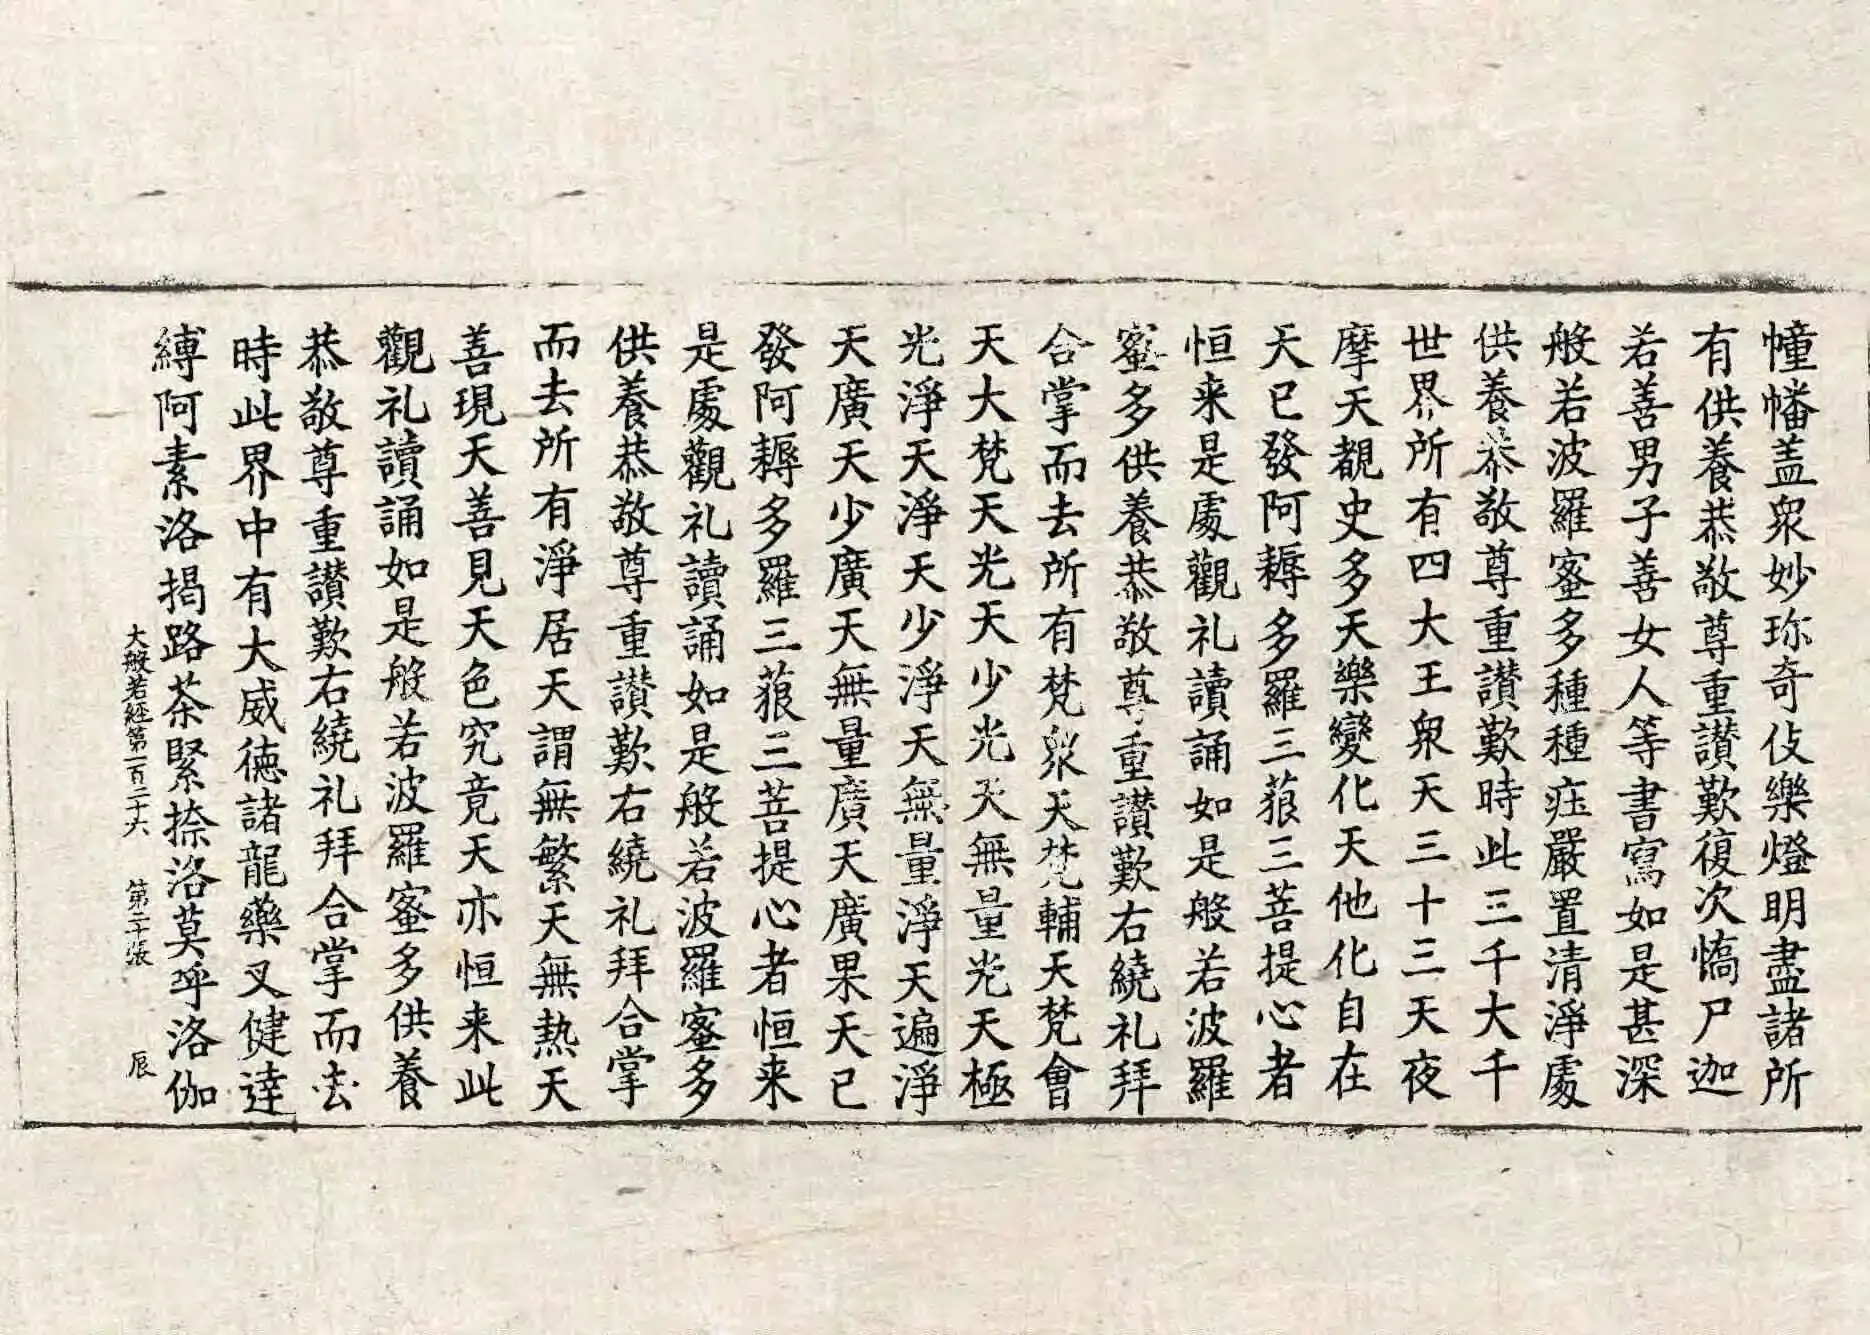 幢幡盖衆妙珎奇伎樂燈明盡諸所
有供養恭敬尊重讃歎復次憍尸迦
若善男子善女人等書寫如是甚深
般若波羅蜜多種種荘嚴置清淨處
供養恭敬尊重讃歎時此三千大千
世界所有四大王衆天三十三天夜
摩天覩史多天樂變化天他化自在
天已發阿耨多羅三藐三菩提心者
恒来是處觀礼讀誦如是般若波羅
蜜多供養恭敬尊重讃歎右繞礼拜
合掌而去所有梵衆天梵輔天梵會
天大梵天光天少光天無量光天極
光淨天淨天少淨天無量淨天遍淨
天廣天少廣天無量廣天廣果天已
發阿耨多羅三藐三菩提心者恒来
是處觀礼讀誦如是般若波羅蜜多
供養恭敬尊重讃歎右繞礼拜合掌
而去所有淨居天謂無繁天無熱天
善現天善見天色究竟天亦恒来此
觀礼讀誦如是般若波羅蜜多供養
恭敬尊重讃歎右繞礼拜合掌而去
時此界中有大威徳諸龍藥叉健達
縛阿素洛揭路荼緊捺洛莫呼洛伽
大般若經第一百二十六 第二十張 辰